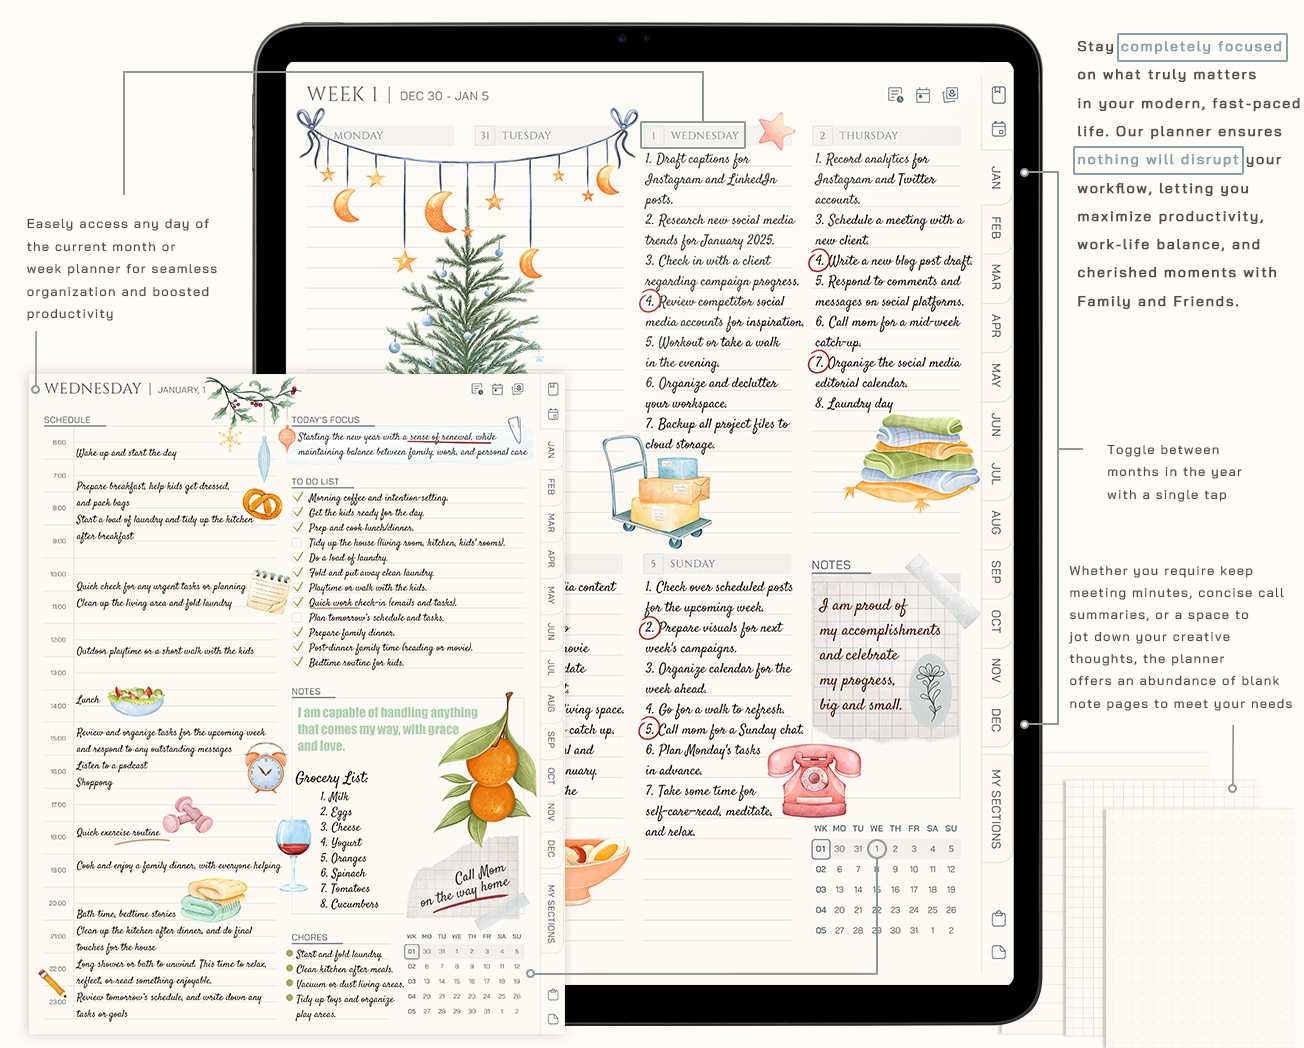 Stay completely focused
on what truly matters
in your modern, fast-paced
life. Our planner ensures
nothing will disrupt your
workflow, letting you
maximize productivity,
work-life balance, and
cherished moments with
Family and Friends.
Easely access any day of
the current month or
week planner for seamless
organization and boosted
productivity
WEEK 1 | DEC 30 - JAN 5
MONDAY
31 TUESDAY
1 WEDNESDAY
1. Draft captions for
Instagram and LinkedIn
posts.
2. Research new social media
trends for January 2025.
3. Check in with a client
regarding campaign progress.
4. Review competitor social
media accounts for inspiration.
5. Workout or take a walk
in the evening.
6. Organize and declutter
your workspace.
7. Backup all project files to
cloud storage.
2 THURSDAY
1. Record analytics for
Instagram and Twitter
accounts.
3. Schedule a meeting with a
new client.
4. Write a new blog post draft.
5. Respond to comments and
messages on social platforms.
6. Call mom for a mid-week
catch-up.
7. Organize the social media
editorial calendar.
8. Laundry day
JAN
FEB
MAR
APR
MAY
JUN
JUL
AUG
SEP
OCT
NOV
DEC
MY SECTIONS
content
movie
date
living space.
catch up.
and
the
5 SUNDAY
1. Check over scheduled posts
for the upcoming week.
2. Prepare visuals for next
week's campaigns.
3. Organize calendar for the
week ahead.
4. Go for a walk to refresh.
5. Call mom for a Sunday chat.
6. Plan Monday's tasks
in advance.
7. Take some time for
self-care—read, meditate,
and relax.
NOTES
I am proud of
my accomplishments
and celebrate
my progress,
big and small.
WK MO TU WE TH FR SA SU
01 30 31 1 2 3 4 5
02 6 7 8 9 10 11 12
03 13 14 15 16 17 18 19
04 20 21 22 23 24 25 26
05 27 28 29 30 31 1 2
WEDNESDAY | JANUARY, 1
SCHEDULE
6:00
Wake up and start the day
7:00
Prepare breakfast, help kids get dressed,
and pack bags
8:00
Start a load of laundry and tidy up the kitchen
after breakfast
9:00
10:00
Quick check for any urgent tasks or planning
Clean up the living area and fold laundry
11:00
12:00
Outdoor playtime or a short walk with the kids
13:00
Lunch
14:00
Review and organize tasks for the upcoming week
15:00
and respond to any outstanding messages
Listen to a podcast
16:00
Shoppong
17:00
Quick exercise routine
18:00
Cook and enjoy a family dinner, with everyone helping
19:00
20:00
Bath time, bedtime stories
21:00
Clean up the kitchen after dinner, and do final
touches for the house
Long shower or bath to unwind. This time to relax,
22:00
reflect, or read something enjoyable.
Review tomorrow's schedule, and write down any
23:00
tasks or goals
TODAY'S FOCUS
Starting the new year with a sense of renewal, while
maintaining balance between family, work, and personal care
TO DO LIST
Morning coffee and intention-setting.
Get the kids ready for the day.
Prep and cook lunch/dinner.
Tidy up the house (living room, kitchen, kids' rooms).
Do a load of laundry.
Fold and put away clean laundry.
Playtime or walk with the kids.
Quick work check-in (emails and tasks).
Plan tomorrow's schedule and tasks.
Prepare family dinner.
Post-dinner family time (reading or movie).
Bedtime routine for kids.
NOTES
I am capable of handling anything
that comes my way, with grace
and love.
Grocery List:
1. Milk
2. Eggs
3. Cheese
4. Yogurt
5. Oranges
6. Spinach
7. Tomatoes
8. Cucumbers
Call Mom
on the way home
CHORES
Start and fold laundry
Clean kitchen after meals.
Vacuum or dust living areas.
Tidy up toys and organize
play areas.
WK MO TU WE TH FR SA SU
01 30 31 1 2 3 4 5
02 6 7 8 9 10 11 12
03 13 14 15 16 17 18 19
04 20 21 22 23 24 25 26
05 27 28 29 30 31 1 2
JAN
FEB
MAR
APR
MAY
JUN
JUL
AUG
SEP
OCT
NOV
DEC
MY SECTIONS
Toggle between
months in the year
with a single tap
Whether you require keep
meeting minutes, concise call
summaries, or a space to
jot down your creative
thoughts, the planner
offers an abundance of blank
note pages to meet your needs